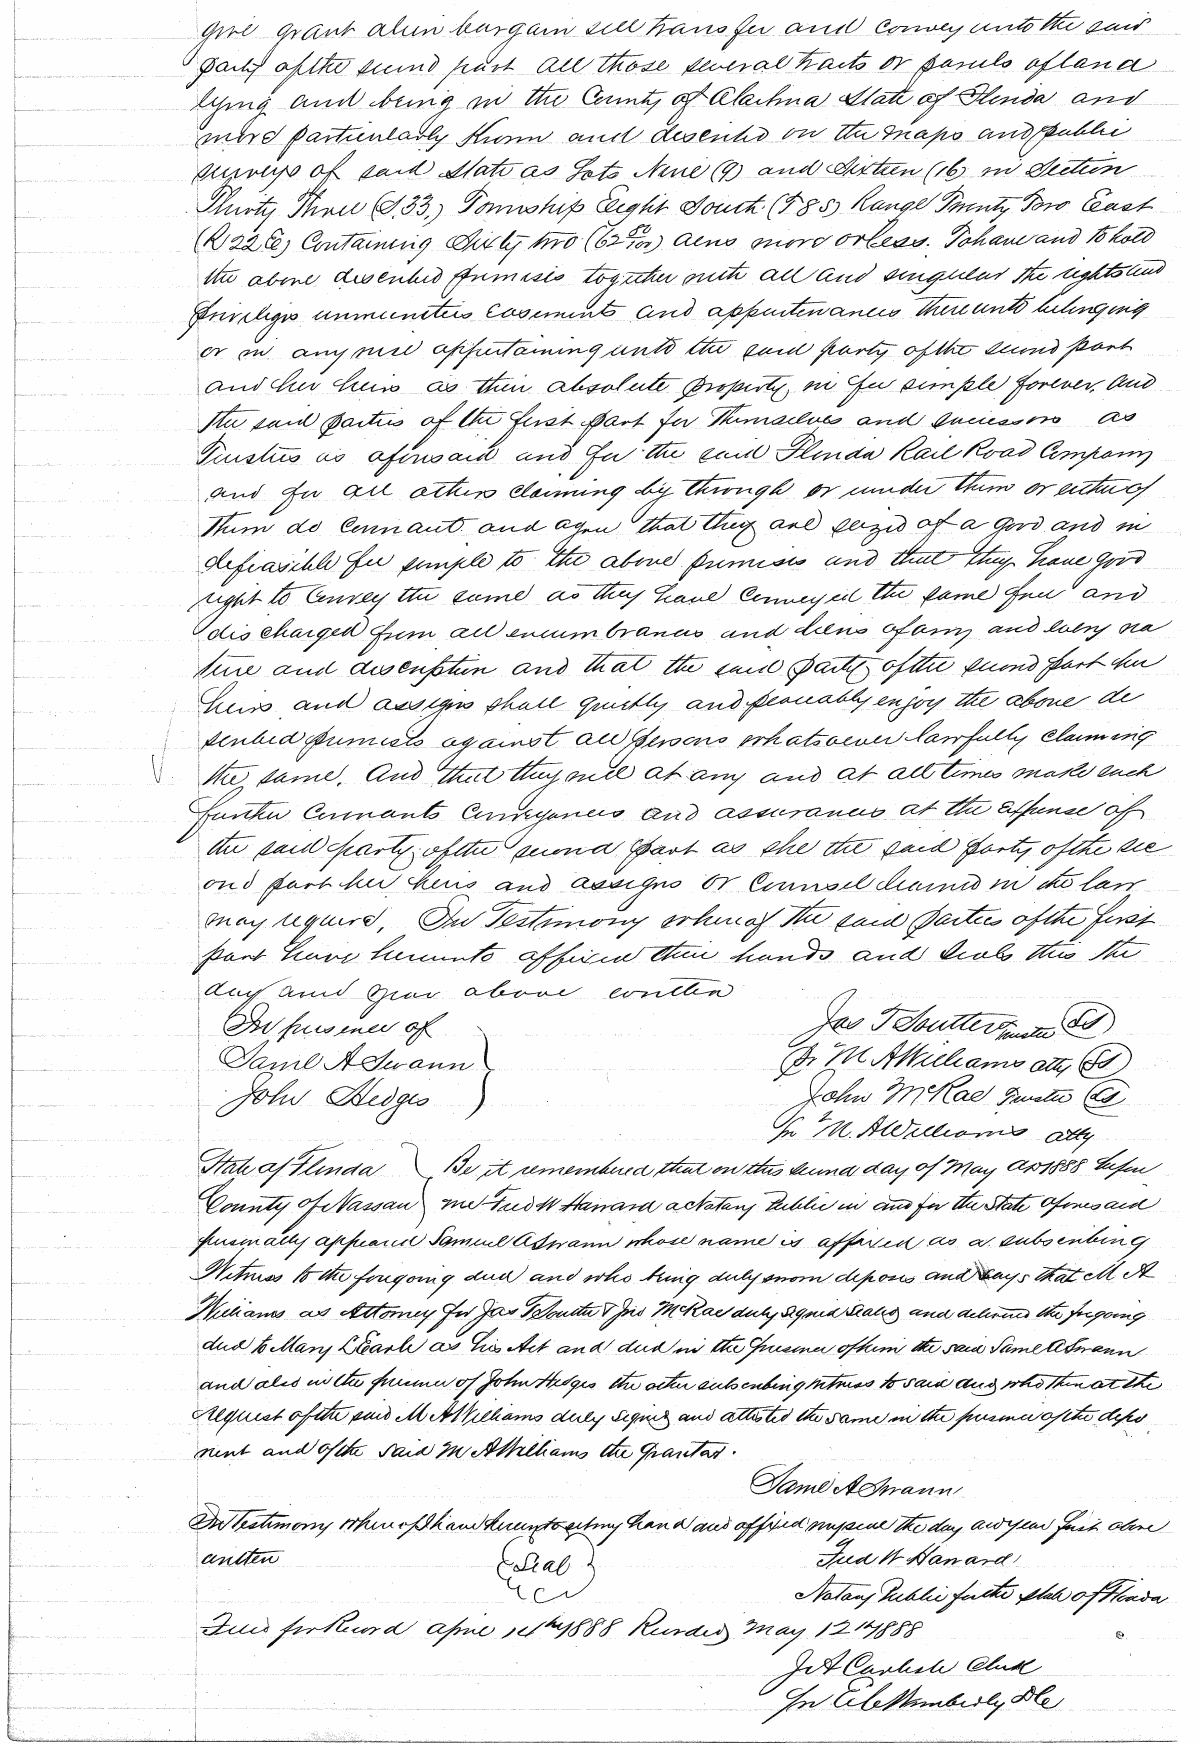 give grant alien bargain sell transfer and convey unto the said
party of the second part all those several tracts or parcels of land
lying and being in the County of Alachua State of Florida and
more particularly Known and described on the maps and public
surveys of said State as Lots Nine (9) and Sixteen (16) in Section
Thirty Three (S.33,) Township Eight South (T 8 S) Range Twenty Two East
(R 22 E) Containing Sixty two (62 /100) acres more or less. To have and to hold
the above described premises together with all and singular the rights and
privileges immunities easements and appurtenances thereunto belonging
or in any wise appertaining unto the said party of the second part
and her heirs as their absolute property in fee simple forever. And
the said parties of the first part for Themselves and successors as
Trustees as aforesaid and for the said Florida Rail Road Company
and for all others claiming by through or under them or either of
them do Covenant and agree that they are seized of a good and in
defeasible fee simple to the above premises and that they have good
right to Convey the same as they have Conveyed the same free and
discharged from all encumbrances and liens of any and every na
ture and description and that the said party of the second part her
heirs and assigns shall quietly and peaceably enjoy the above de
scribed premises against all persons whatsoever lawfully claiming
the same. And that they will at any and at all times make such
further Covenants Conveyances and assurances at the expense of
the said party of the second part as she the said party of the sec
ond part her heirs and assigns or Counsel learned in the law
may require. In Testimony whereof the said parties of the first
part have hereunto affixed their hands and seals this the
day and year above written
In presence of
Saml A Swann
John Hedges
Jas T Soutter Trustee LS
Pr M A Williams atty LS
John McRae Trustee LS
Pr M. A Williams atty
State of Florida Be it remembered that on this second day of May AD 1888 before
County of Nassau me Fred W Hanard a Notary Public in and for the State aforesaid
personally appeared Samuel A Swann whose name is affixed as a subscribing
Witness to the foregoing deed and who being duly sworn deposes and says that M A
Williams as Attorney for Jas T Soutter & Jno McRae duly signed sealed and delivered the foregoing
deed to Mary L Earle as his Act and deed in the presence of him the said Saml A Swann
and also in the presence of John Hedges the other subscribing witness to said deed who then at the
request of the said M A Williams duly signed and attested the same in the presence of the depo
nent and of the said M A Williams the Grantor.
Saml A Swann
In Testimony whereof I have hereunto set my hand and affixed my seal the day and year first above
written
Seal
Fred W Hanard
Notary Public for the State of Florida
Filed for Record 1888 Recorded May 12th 1888
J A Carlisle Clerk
Pr Wimberly DC